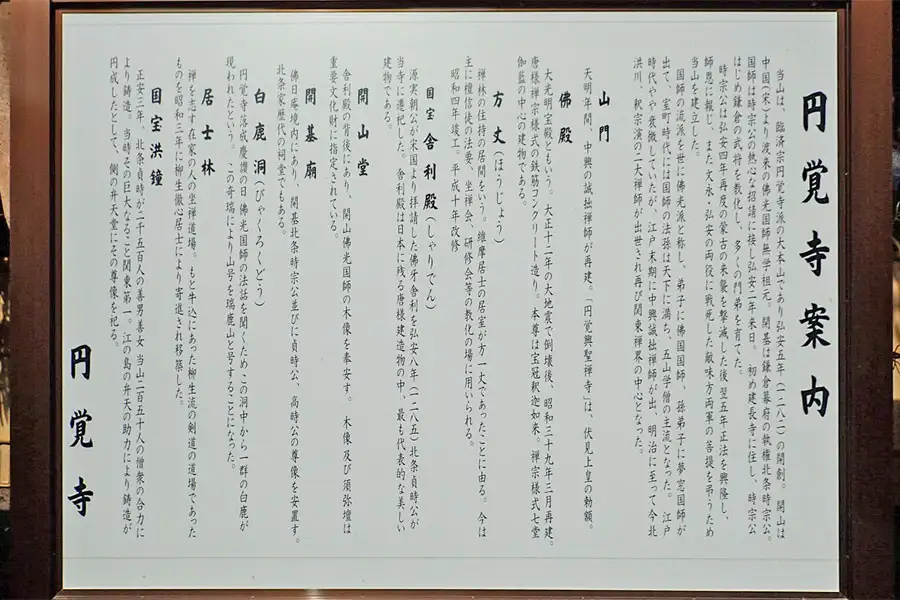 円覚寺案内
当山は、臨済宗円覚寺派の大本山であり弘安五年(一二八二)の開創。開山は
中国(宋)より渡来の佛光国師無学祖元。開基は鎌倉幕府の執権北条時宗公。
国師は時宗公の熱心な招請に接し弘安二年来日。初め建長寺に住し、時宗公
はじめ鎌倉の武将を教化し、多くの門弟を育てた。
時宗公は弘安四年再度の蒙古の来襲を撃滅した後翌五年正法を興隆し、
師恩に報じ、また文永・弘安の両役に戦死した敵味方両軍の菩提を弔うため
当山を建立した。
国師の流派を世に佛光派と称し、弟子に佛国国師、孫弟子に夢窓国師が
出て、室町時代には国師の法孫は天下に満ち、五山学僧の主流となった。江戸
時代やや衰微していたが、江戸末期に中興誠拙禅師が出、明治に至って今北
洪川、釈宗演の二大禅師が出世され再び関東禅界の中心となった。
山門
天明年間、中興の誠拙禅師が再建。「円覚興聖禅寺」は、伏見上皇の勅額。
佛殿
大光明宝殿ともいう。大正十二年の大地震で倒壊後、昭和三十九年三月再建。
唐様禅宗様式の鉄筋コンクリート造り。本尊は宝冠釈迦如来。禅宗様式七堂
伽藍の中心の建物である。
方丈(ほうじょう)
禅林の住持の居間をいう。維摩居士の居室が方一丈であったことに由る。今は
主に檀信徒の法要、坐禅会、研修会等の教化の場に用いられる。
昭和四年竣工。平成十年改修
国宝 舎利殿(しゃりでん)
源実朝公が宋国より拝請した佛牙舎利を弘安八年(一二八五)北条貞時公が
当寺に遷祀した。舎利殿は日本に残る唐様建造物の中、最も代表的な美しい
建物である。
開山堂
舎利殿の背後にあり、開山佛光国師の木像を奉安す。木像及び須弥壇は
重要文化財に指定されている。
開基廟
佛日庵境内にあり、開基北条時宗公並びに貞時公、高時公の尊像を安置す。
北条家歴代の祠堂でもある。
白鹿洞(びゃくろくどう)
円覚寺落成慶讃の日、佛光国師の法話を聞くため、この洞中から一群の白鹿が
現われたという。この奇瑞により山号を瑞鹿山と号することになった。
居士林
禅を志す在家の人の坐禅道場。もと牛込にあった柳生流の剣道の道場であった
ものを昭和三年に柳生徹心居士により寄進され移築した。
国宝洪鐘
正安三年、北条貞時が二千五百人の善男善女 当山二百五十人の僧衆の合力に
より鋳造。当時その巨大なること関東第一。江の島の弁天の助力により鋳造が
円成したとして、側の弁天堂にその尊像を祀る。
円覚寺